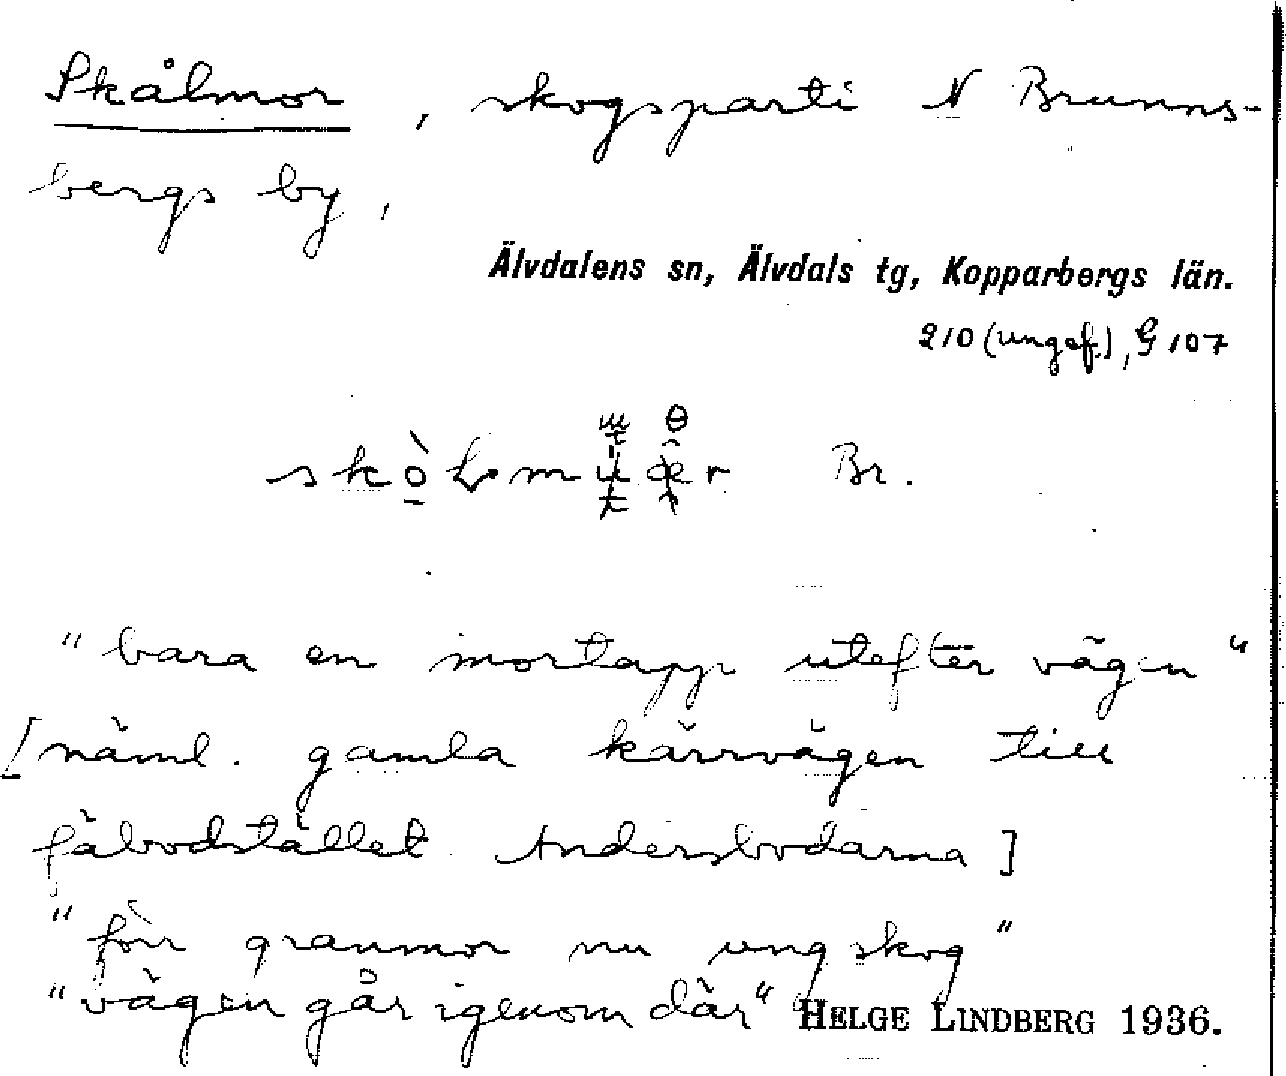 Skålmor, skogsparti N Brunns-
bergs by,
Älvdalens sn, Älvdals tg, Kopparbergs län.
210 (ungef.), G 107
Br.
"bara en mortapp utefter vägen"
[näml. gamla kärrvägen till
fäbodstället Andersbodarna]
"förr granmor nu ungskog"
"vägen går igenom där" HELGE LINDBERG 1936.